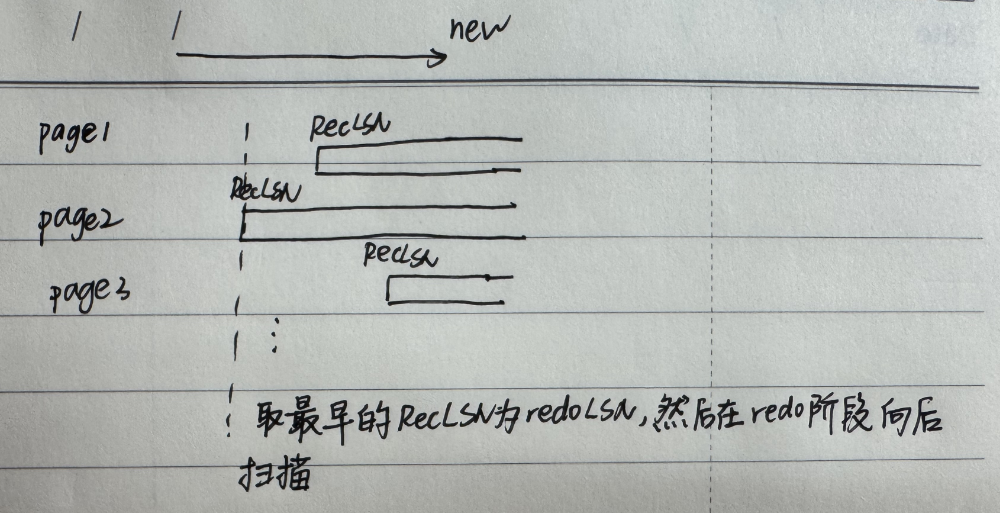 / / new
page1 RecLSN
page2 RecLSN
page3 RecLSN
取最早的RecLSN为redoLSN,然后在redo阶段向后
扫描